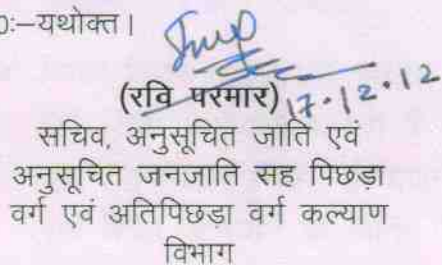 0:–यथोक्त।
(रवि परमार) 17.12.12
सचिव, अनुसूचित जाति एवं
अनुसूचित जनजाति सह पिछड़ा
वर्ग एवं अतिपिछड़ा वर्ग कल्याण
विभाग